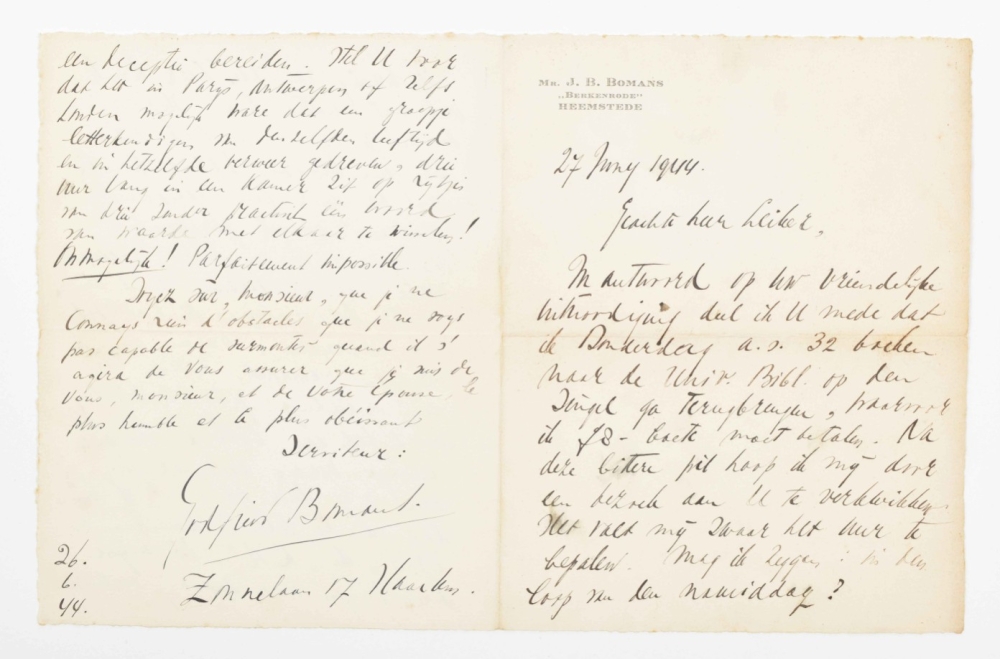 MR. J. B. BOMANS
„BERKENRODE"
HEEMSTEDE
27 Juny 1944.
Geachte heer Leiker,
In antwoord op uw vriendelijke
uitnoodiging deel ik U mede dat
ik Donderdag a.s. 32 boeken
naar de Univ. Bibl. op den
Singel ga terugbrengen, waarvoor
ik ƒ8- boete moet betalen. Na
deze bittere pil hoop ik mij door
een bezoek aan U te verkwikken.
Het valt mij zwaar het uur te
bepalen. Mag ik zeggen: in den
loop van den namiddag?
een deceptie bereiden. Stel U voor
dat het in Parijs, Antwerpen of zelfs
Londen mogelijk ware dat een groepje
letterkundigen van denzelfden leeftijd
en in hetzelfde verweer gedreven, drie
uur lang in een kamer zit op rijtjes
van drie zonder practisch één woord
van waarde met elkaar te wisselen!
Onmogelijk! Parfaitement impossible.
Soyez sûr, Monsieur, que je ne
connays rien d'obstacles que je ne soys
pas capable de surmonter quand il s'
agira de vous assurer que je suis de
vous, monsieur, et de votre épouse, le
plus humble et le plus obéissant
Serviteur:
Godfried Bomans.
Zonnelaan 17 Haarlem.
26.
6.
44.